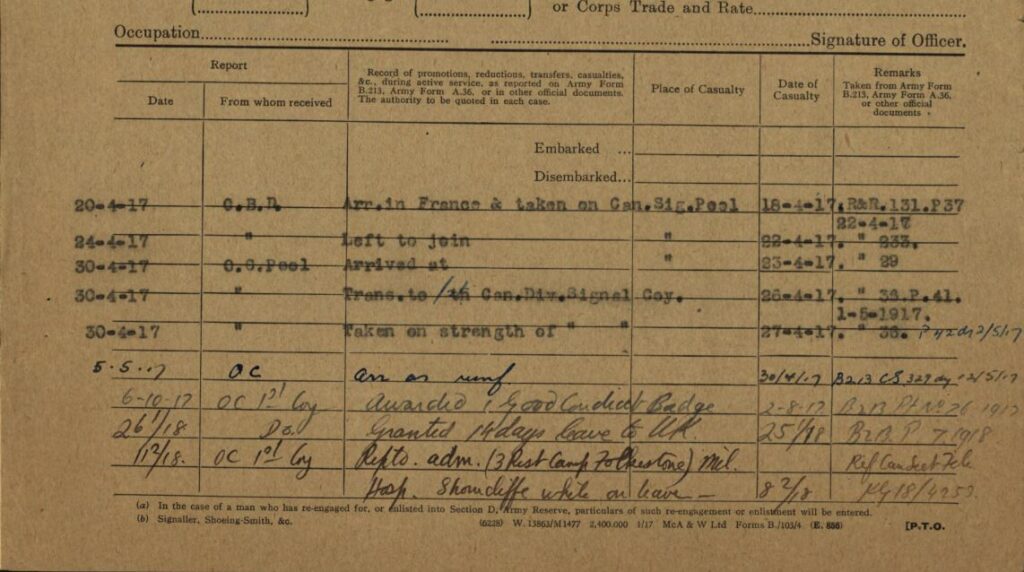 or Corps Trade and Rate
Occupation
Signature of Officer.
Report
Date
From whom received
Record of promotions, reductions, transfers, casualties,
&c., during active service, as reported on Army Form
B.213, Army Form A.36, or in other official documents.
The authority to be quoted in each case.
Place of Casualty
Date of
Casualty
Remarks
Taken from Army Form
B.213, Army Form A.36,
or other official
documents
Embarked ...
Disembarked...
20-4-17 C.B.D. Arr.in France & taken on Can.Sig.Pool 18-4-17. R&R.131.P37
22-4-17
24-4-17 " Left to join " 22-4-17. " 233.
30-4-17 C.C.Pool Arrived at " 23-4-17. " 29
30-4-17 " Trans.to Can.Div.Signal Coy. 26-4-17. " 36.P.41.
1-5-1917.
30-4-17 " Taken on strength of " " 27-4-17. " 36. 2/5/17
5.5.17 OC arr as reinf 30/4/17 B213 CS 12/5/17
6-10-17 OC 1st Coy Awarded 1 Good Conduct Badge 2-8-17 B213 Pt No 26 1917
26/1/18 Do. Granted 14 days leave to UK. 25/1/18 B213. P 7. 1918
OC 1st Coy Repto. adm. (3 Rest Camp Folkestone) Mil. Ref Can Sect Tele
Hosp. Shorncliffe while on leave — 8/2/18
(a) In the case of a man who has re-engaged for, or enlisted into Section D, Army Reserve, particulars of such re-engagement or enlistment will be entered.
(b) Signaller, Shoeing-Smith, &c.
(6228) W. 13863/M1477 2,400,000 1/17 McA & W Ltd Forms B./103/4 (E. 856) [P.T.O.